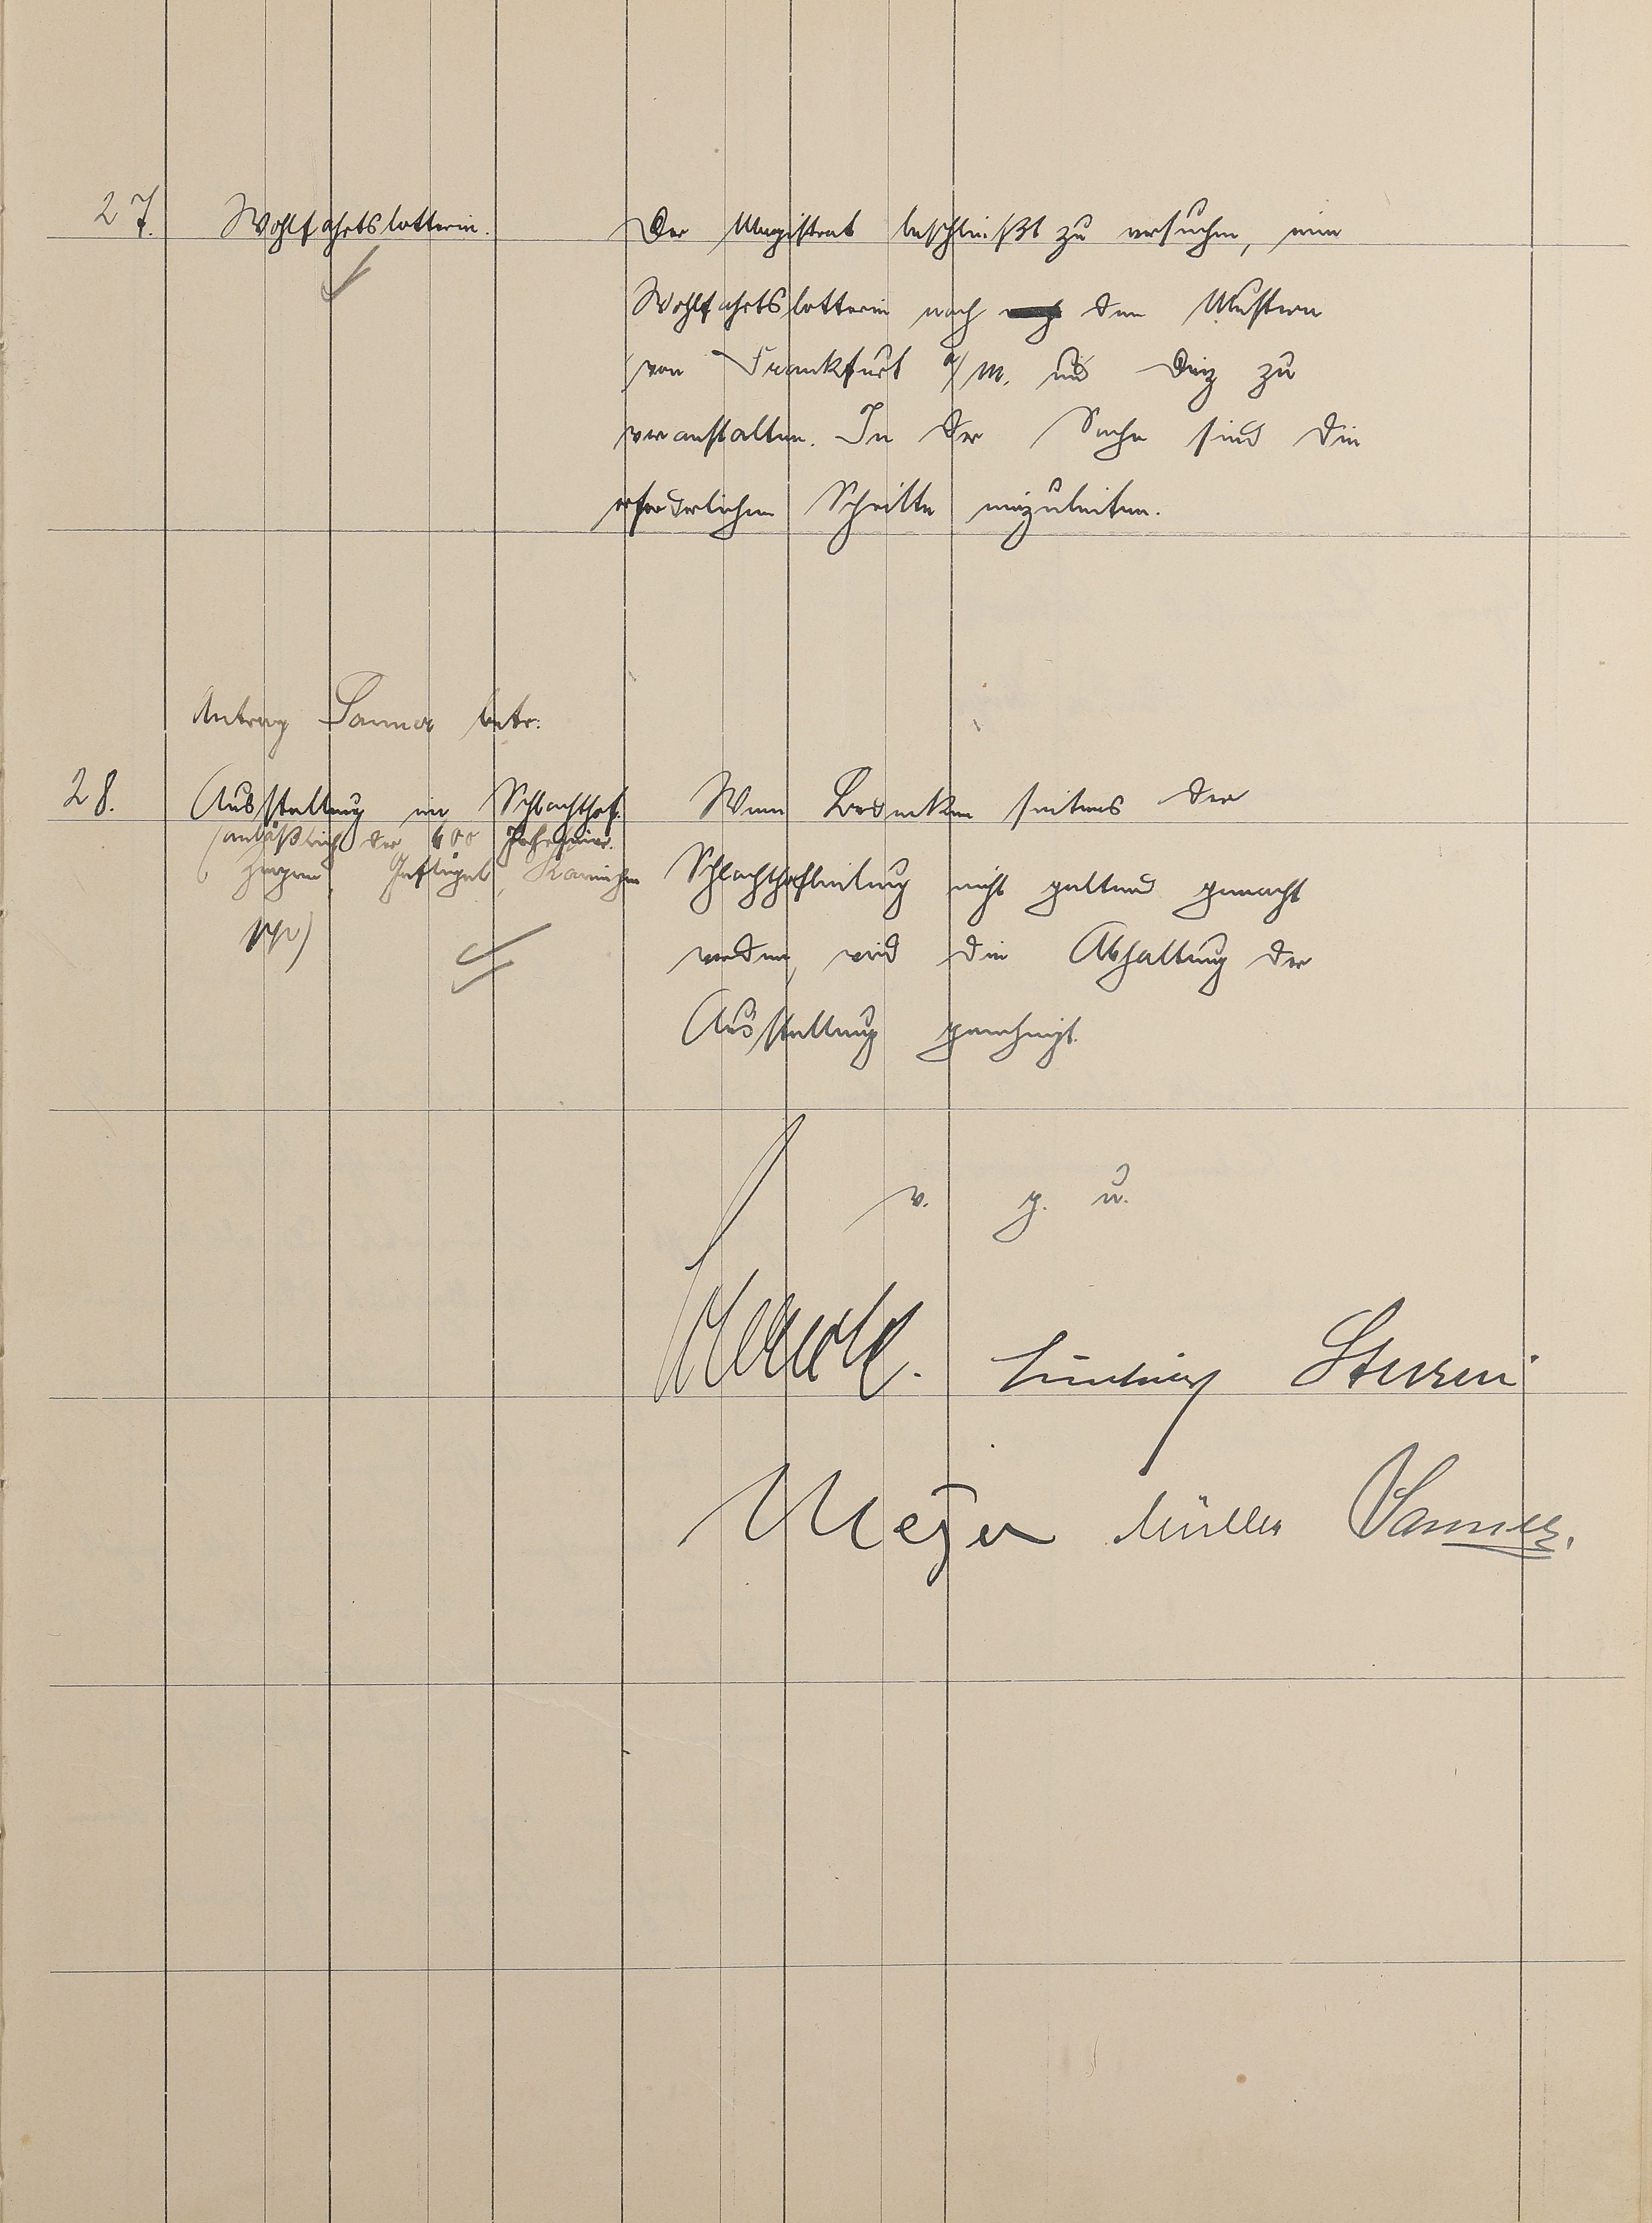 27. Wohlfahrtslotterie.
Der Magistrat beschließt zu versuchen, eine
Wohlfahrtslotterie nach den Mustern
von Frankfurt a/M. und Diez zu
veranstalten. In der Sache sind die
erforderlichen Schritte einzuleiten.
Antrag Sanner betr:
28. Ausstellung im Schlachthof.
(anläßlich der 600 Jahrfeier.
Ziegen, Geflügel, Kaninchen
pp)
Wenn Bedenken seitens der
Schlachthofleitung nicht geltend gemacht
werden, wird die Abhaltung der
Ausstellung genehmigt.
v. g. u.
Meyer Müller Sanner.